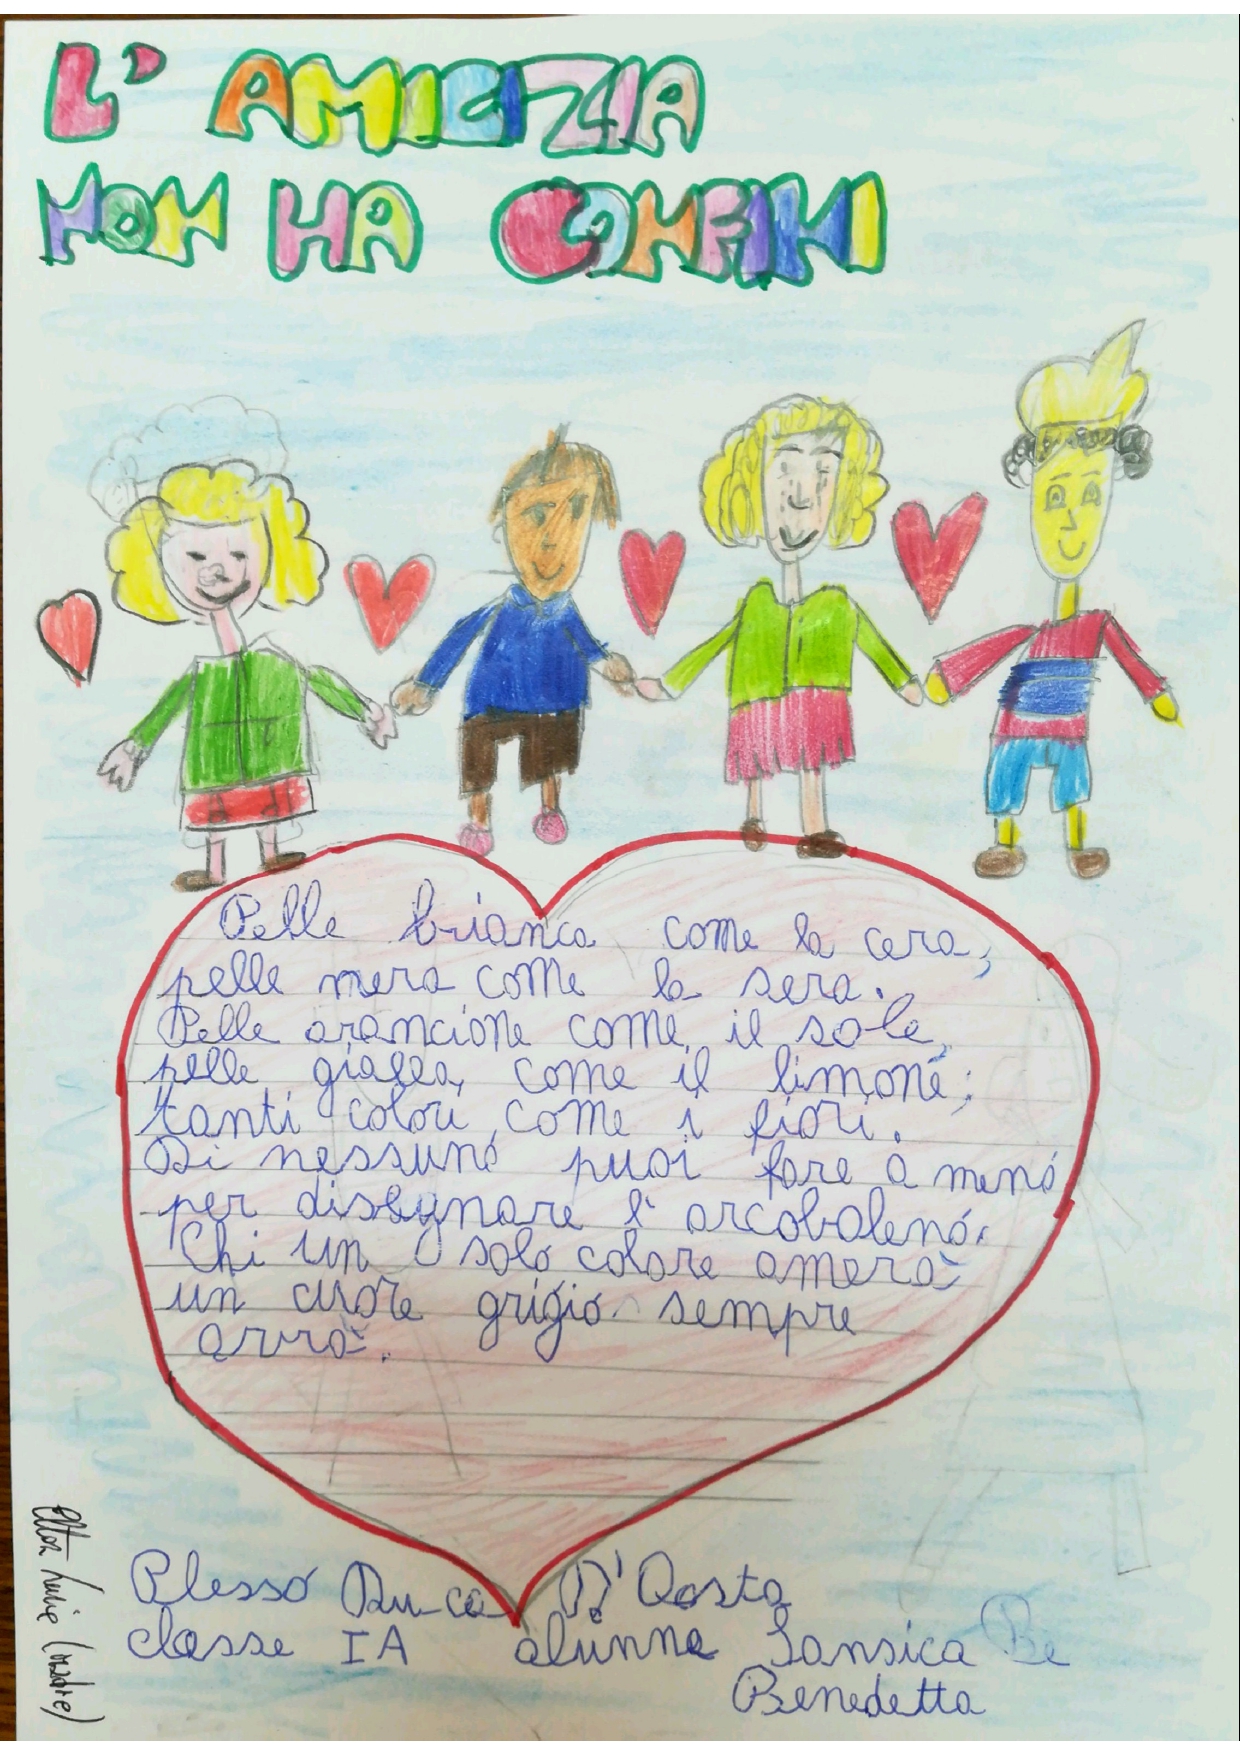 L' AMICIZIA
NON HA CONFINI
Pelle bianca come la cera,
pelle nera come la sera.
Pelle arancione come il sole,
pelle gialla, come il limone;
tanti colori come i fiori.
Di nessuno puoi fare a meno
per disegnare l'arcobaleno.
Chi un solo colore amerà
un cuore grigio sempre
avrà.
Plesso Duca D'Aosta
classe IA alunna Sansica Be
Benedetta
(madre)